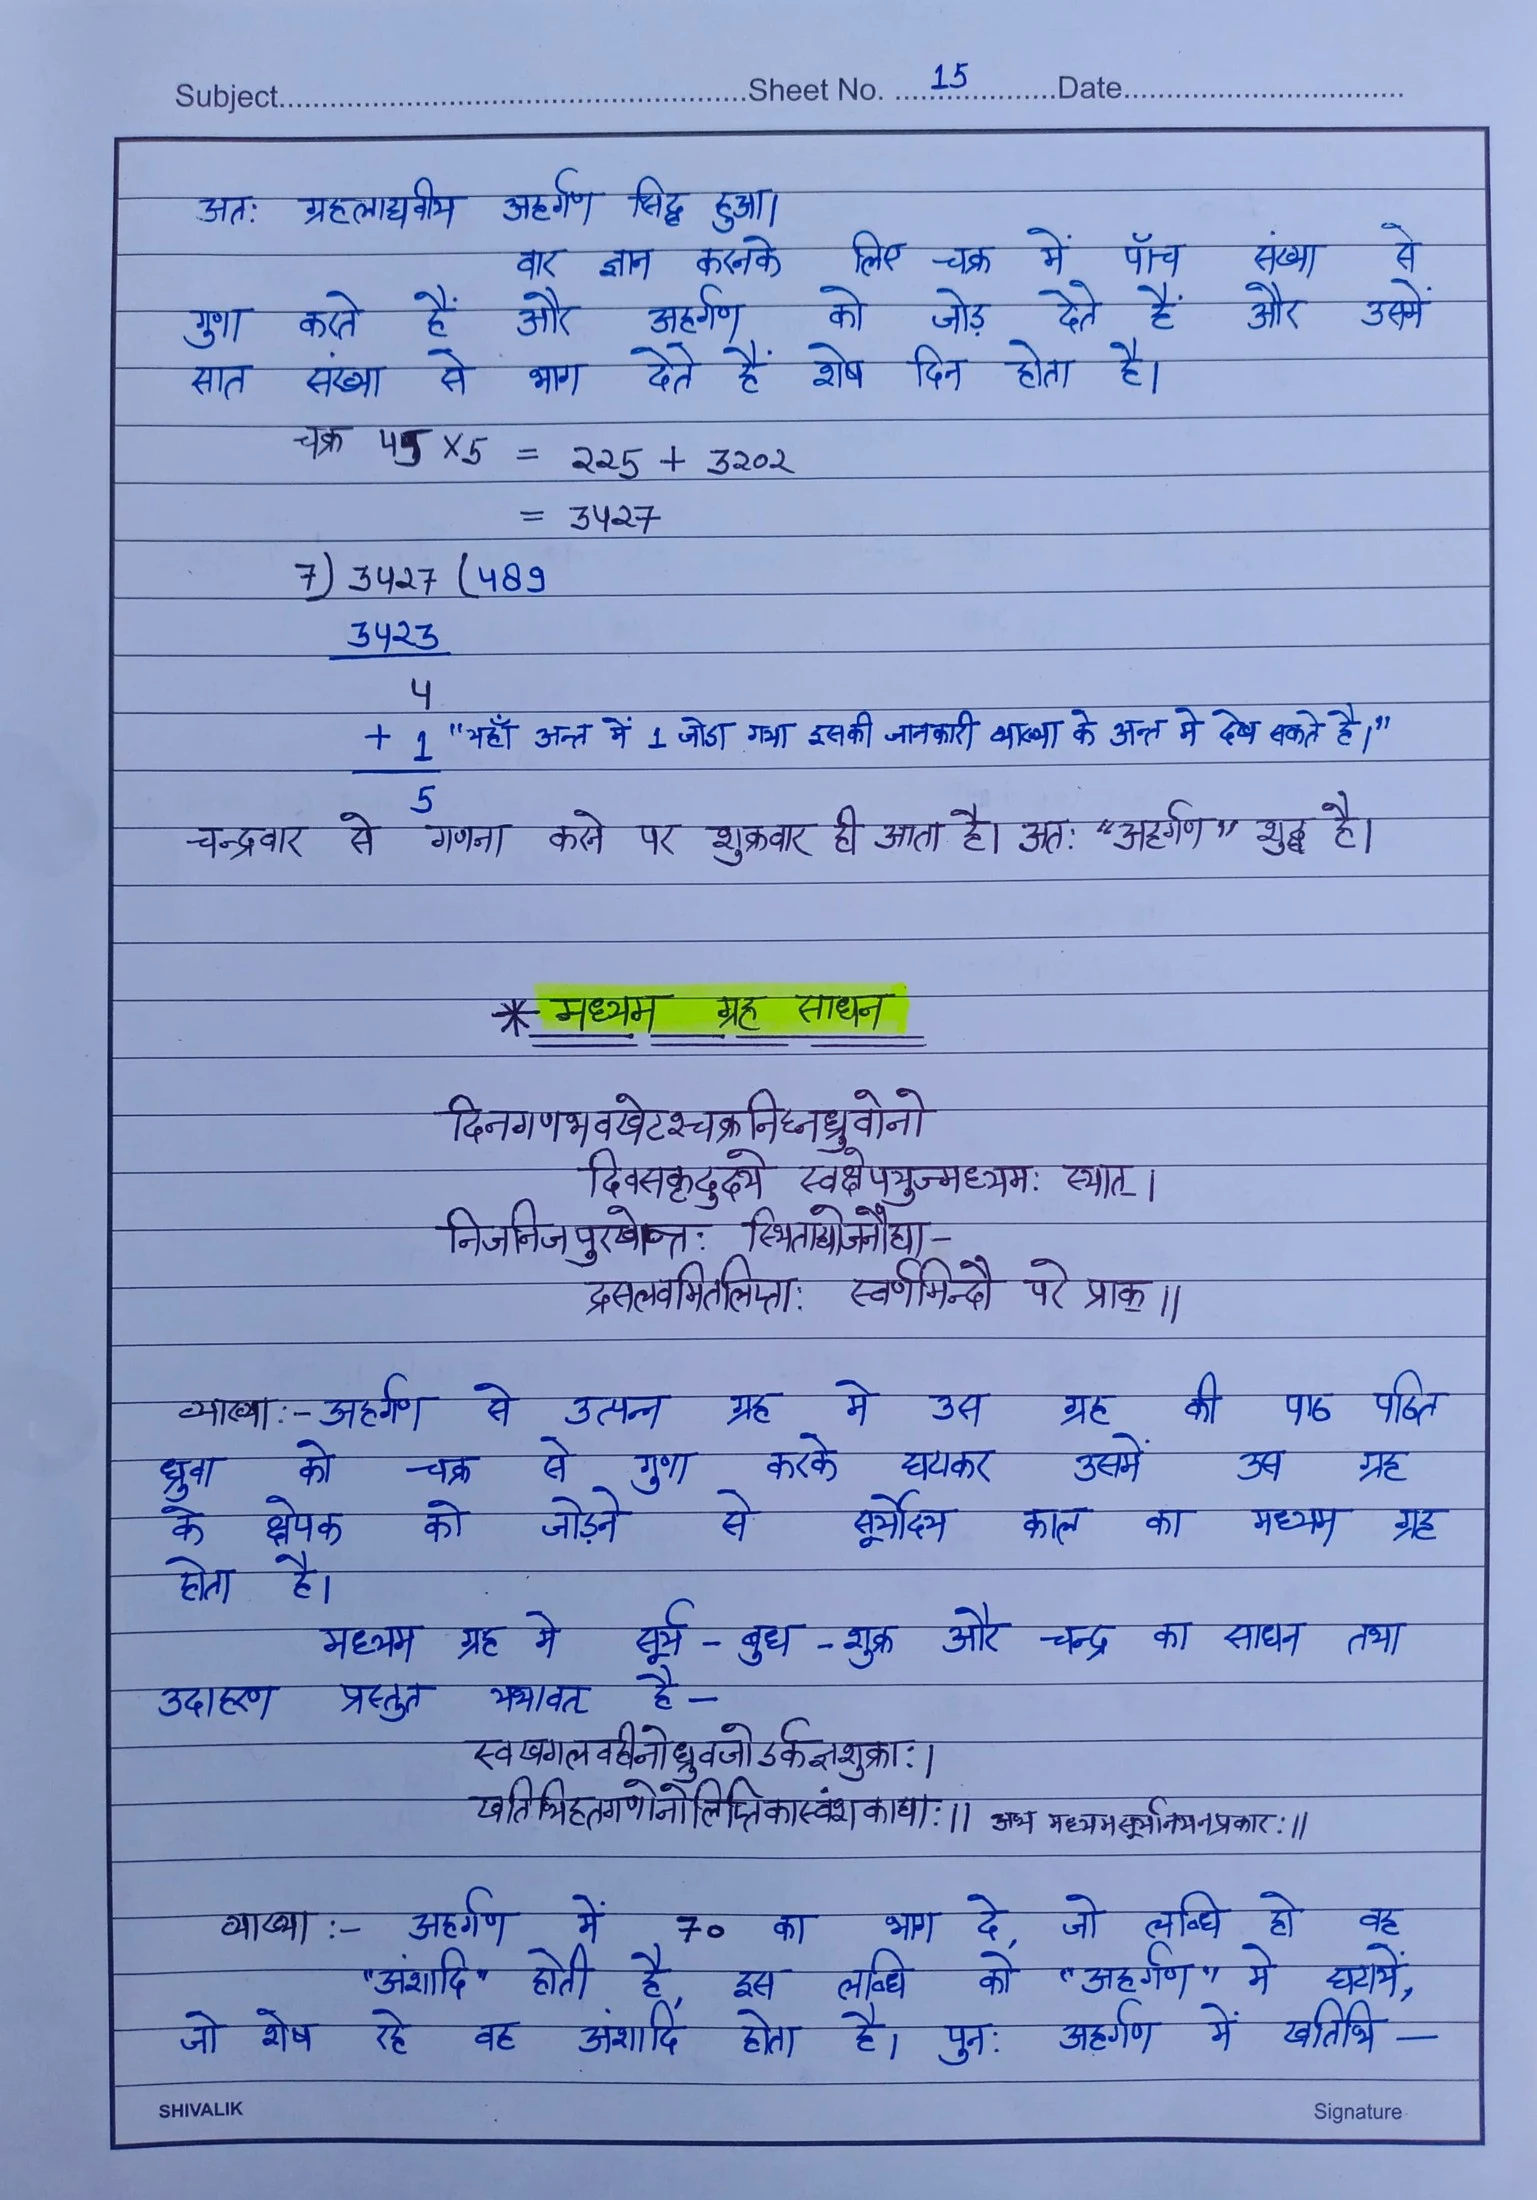 Subject........................Sheet No. ....15....Date........................
अतः ग्रहलाघवीय अहर्गण सिद्ध हुआ।
वार ज्ञान करनके लिए चक्र में पाँच संख्या से
गुणा करते हैं और अहर्गण को जोड़ देते हैं और उसमें
सात संख्या से भाग देते हैं शेष दिन होता है।
चक्र 45 ×5 = 225 + 3202
= 3427
7) 3427 (489
3423
4
+ 1 "यहाँ अन्त में 1 जोडा गया इसकी जानकारी व्याख्या के अन्त मे देख सकते है।"
5
चन्द्रवार से गणना करने पर शुक्रवार ही आता है। अतः "अहर्गण" शुद्ध है।
* मध्यम ग्रह साधन
दिनगणभवखेटश्चक्रनिघ्नध्रुवोनो
दिवसकृदुदये स्वक्षेपयुज्मध्यमः स्यात्।
निजनिजपुररेखान्तः स्थिताद्योजनौघा-
द्रसलवमितलिप्ताः स्वर्णमिन्दौ परे प्राक्॥
व्याख्या:- अहर्गण से उत्पन्न ग्रह मे उस ग्रह की पाठ पठित
ध्रुवा को चक्र से गुणा करके घटाकर उसमें उस ग्रह
के क्षेपक को जोड़ने से सूर्योदय काल का मध्यम ग्रह
होता है।
मध्यम ग्रह मे सूर्य - बुध - शुक्र और चन्द्र का साधन तथा
उदाहरण प्रस्तुत यथावत् है -
स्वखगलवहीनोध्रुवजोऽर्कज्ञशुक्राः।
खतिथिहृतगणोनोलिप्तिकास्वंशकाद्याः॥ अथ मध्यमसूर्यानयनप्रकारः॥
व्याख्या :- अहर्गण में 70 का भाग दे, जो लब्धि हो वह
"अंशादि" होती है, इस लब्धि को "अहर्गण" मे घटायें,
जो शेष रहे वह अंशादि होता है। पुनः अहर्गण में खतिथि -
SHIVALIK
Signature